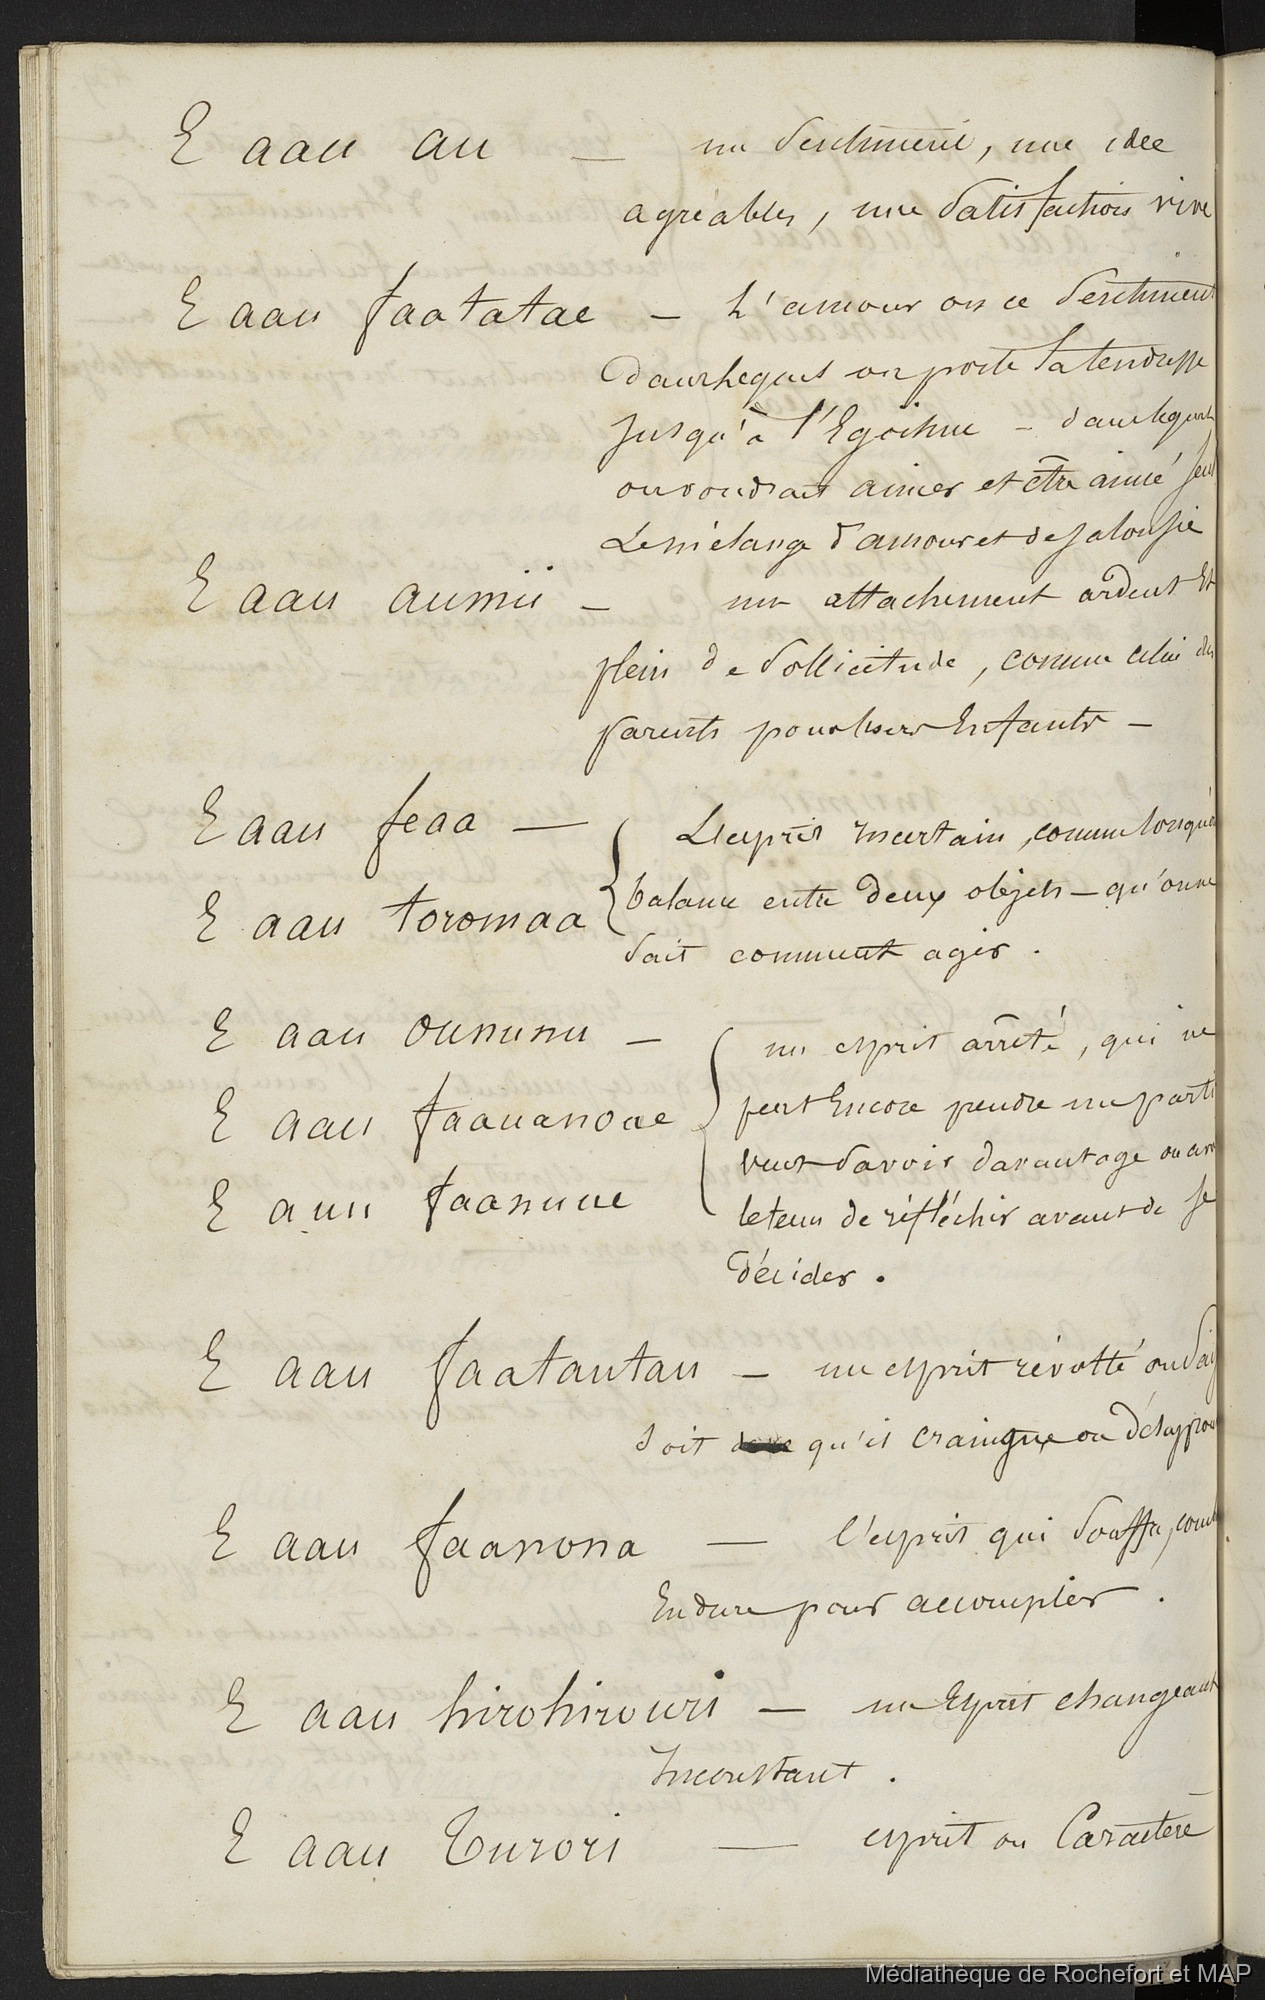 E aau au — un sentiment, une idée
agréables, une satisfaction vive
E aau faatatae — L'amour ou ce sentiment
dans lequel on porte la tendresse
jusqu'à l'Egoïsme - dans lequel
on voudrait aimer et être aimé seul
Le mélange d'amour et de jalousie
E aau aumii — un attachement ardent et
plein de sollicitude, comme celui des
parents pour leurs Enfants —
E aau feaa — L'esprit incertain, comme lorsqu'on
E aau toromaa balance entre deux objets — qu'on ne
sait comment agir.
E aau oununu — un esprit arrêté, qui ne
E aau faauanoue peut Encore prendre un parti
veut savoir davantage ou avoir
E auu faanuue le tems de réfléchir avant de se
décider.
E aau faatautau — un esprit révolté ou
soit qu'il craingne ou
E aau faanona — l'esprit qui souffre,
Endure pour accomplir.
E aau hirohirouri — un Esprit changeant
Inconstant.
E aau Turori — esprit ou Caractère
Médiathèque de Rochefort et MAP